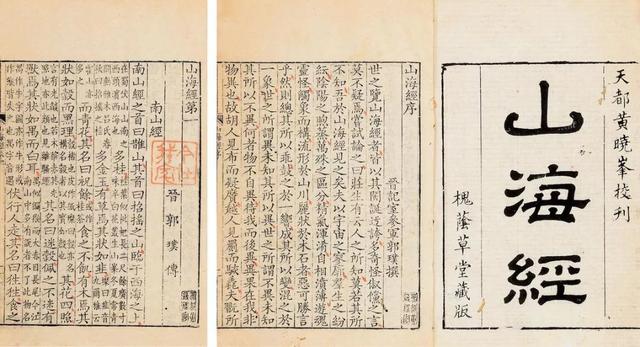 天都黄曉峯校刊
山海經
槐蔭草堂藏版
山海經序
晉記室參軍郭璞撰
世之覽山海經者皆以其閎誕迂誇多奇怪俶儻之言
莫不疑焉嘗試論之曰莊生有云人之所知莫若其所
不知吾於山海經見之矣夫以宇宙之寥廓羣生之紛
紜陰陽之煦蒸萬殊之區分精氣渾淆自相濆薄遊魂
靈怪觸象而構流形於山川麗狀於木石者惡可勝言
乎然則總其所以乖鼓之於一響成其所以變混之於
一象世之所謂異未知其所以異世之所謂不異未知
其所以不異何者物不自異待我而後異異果在我非
物異也故胡人見布而疑黂越人見罽而駭毳夫翫所
山海經第一
晉 郭璞 傳
南山經
南山經之首曰䧿山其首曰招搖之山臨于西海之上
多桂 多金玉有草焉其狀如韭
而青花其名曰祝餘 食之不飢有木焉其
狀如穀而黑理 其花四照
其名曰迷穀佩之不迷有
獸焉其狀如禺而白耳
伏行人走其名曰狌狌食之